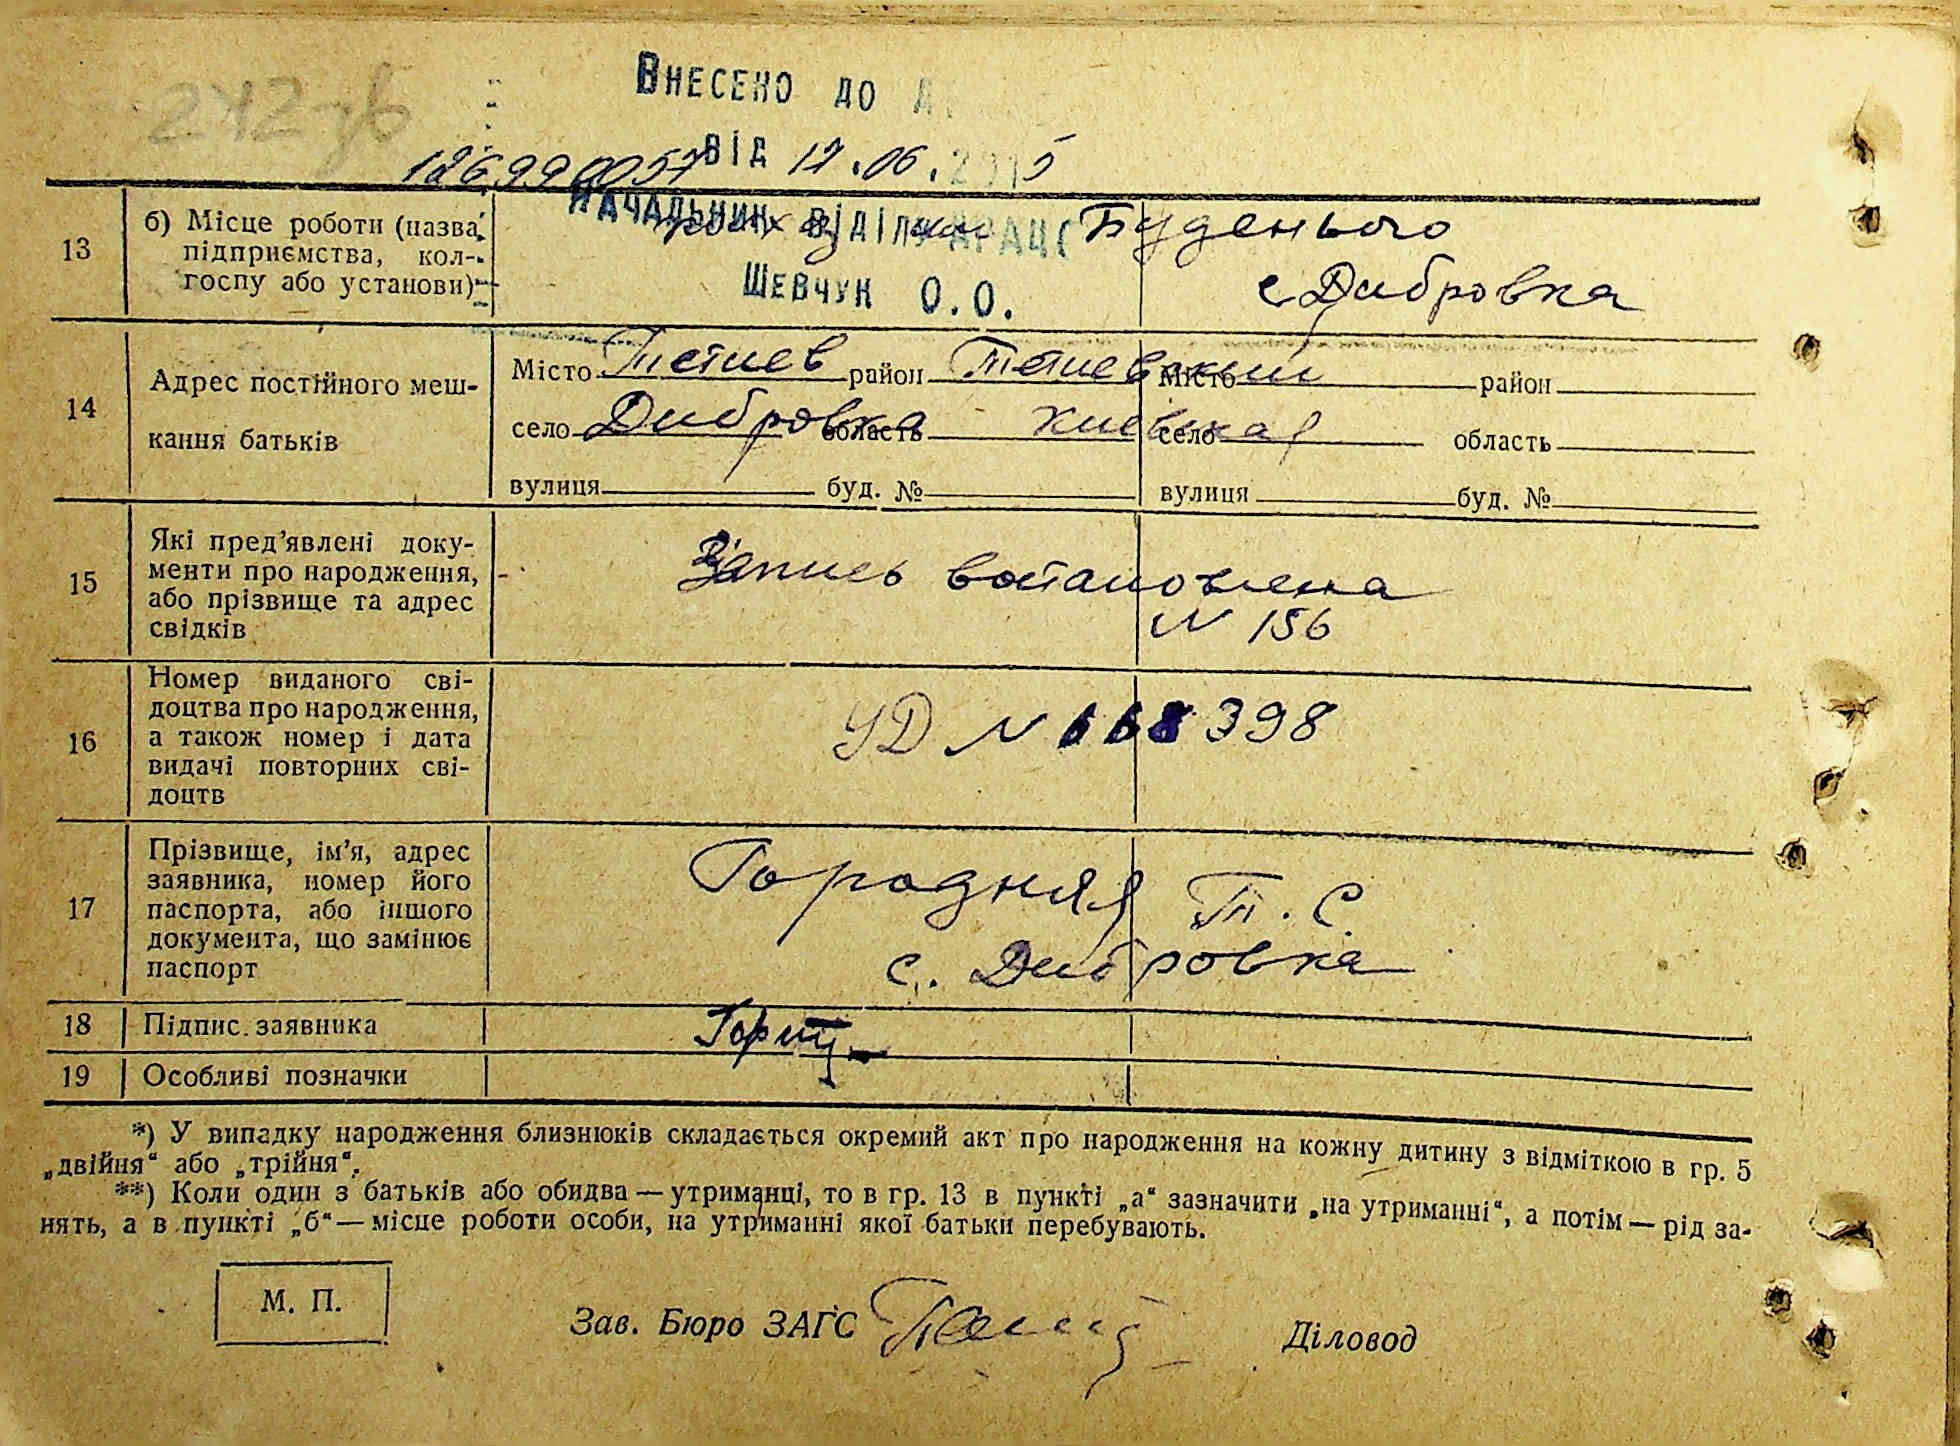 242
Внесено до
12699 0057 від 17.06.2015
Начальник відділу ДРАЦС
Шевчук О.О.
13 б) Місце роботи (назва підприємства, кол-
госпу або установи)
Буденього
с Дибровка
14 Адрес постійного меш-
кання батьків
Місто Тетиев район Тетиевский Місто район
село Дибровка область Киевская село область
вулиця буд. № вулиця буд. №
15 Які пред’явлені доку-
менти про народження,
або прізвище та адрес
свідків
Запись востановлена
N 156
16 Номер виданого сві-
доцтва про народження,
а також номер і дата
видачі повторних сві-
доцтв
УД N 668398
17 Прізвище, ім’я, адрес
заявника, номер його
паспорта, або іншого
документа, що замінює
паспорт
Городняя Т. С
с. Дибровка
18 Підпис заявника
19 Особливі позначки
*) У випадку народження близнюків складається окремий акт про народження на кожну дитину з відміткою в гр. 5
„двійня“ або „трійня“.
**) Коли один з батьків або обидва — утриманці, то в гр. 13 в пункті „а“ зазначити „на утриманні“, а потім — рід за-
нять, а в пункті „б“ — місце роботи особи, на утриманні якої батьки перебувають.
М. П.
Зав. Бюро ЗАГС
Діловод